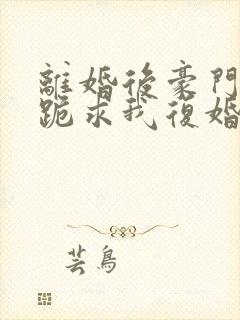 離婚後豪門
跪求我復婚
芸鳥